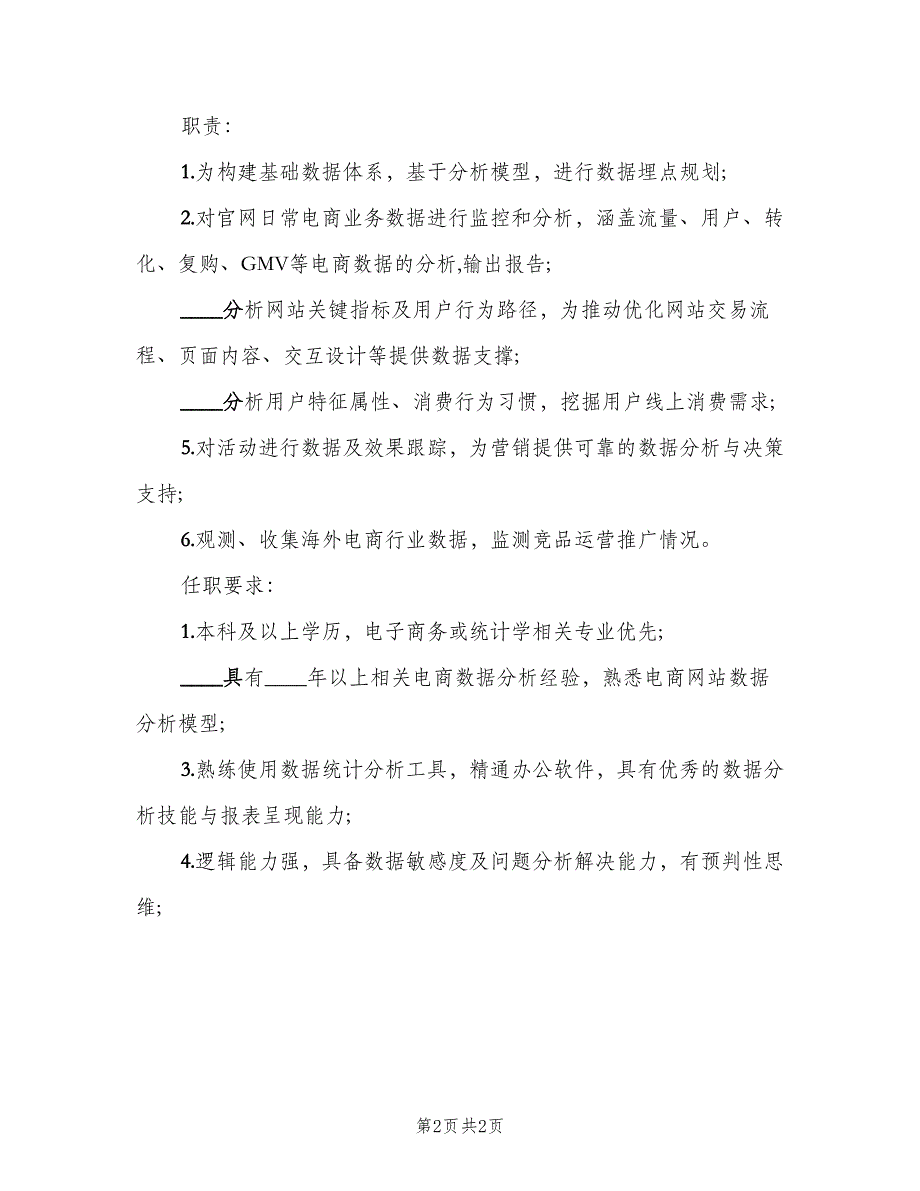 职责：
1.为构建基础数据体系，基于分析模型，进行数据埋点规划;
2.对官网日常电商业务数据进行监控和分析，涵盖流量、用户、转
化、复购、GMV等电商数据的分析,输出报告;
____分析网站关键指标及用户行为路径，为推动优化网站交易流
程、页面内容、交互设计等提供数据支撑;
____分析用户特征属性、消费行为习惯，挖掘用户线上消费需求;
5.对活动进行数据及效果跟踪，为营销提供可靠的数据分析与决策
支持;
6.观测、收集海外电商行业数据，监测竞品运营推广情况。
任职要求：
1.本科及以上学历，电子商务或统计学相关专业优先;
____具有____年以上相关电商数据分析经验，熟悉电商网站数据
分析模型;
3.熟练使用数据统计分析工具，精通办公软件，具有优秀的数据分
析技能与报表呈现能力;
4.逻辑能力强，具备数据敏感度及问题分析解决能力，有预判性思
维;
第2页 共2页